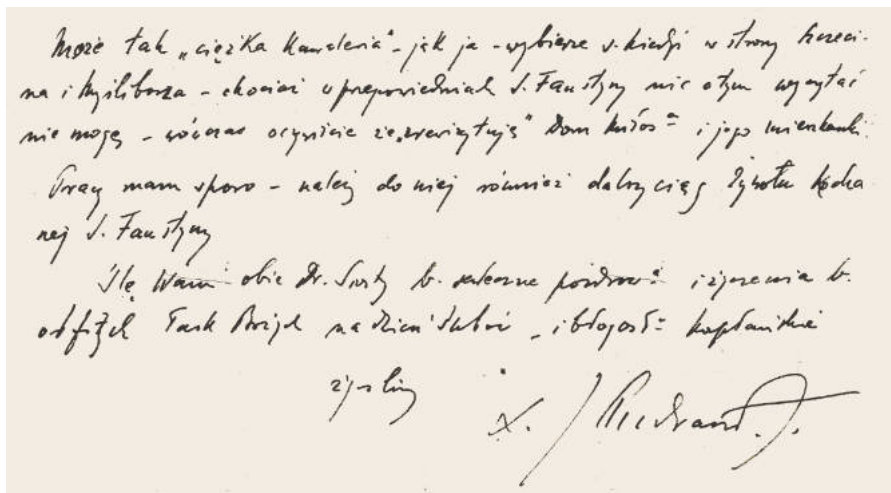 Może tak „ciężka kawaleria" – jak ja – wybierze s. kiedyś w strony Szczeci-
na i Myśliborza – chociaż w przepowiedniach S. Faustyny nic o tym wyczytać
nie mogę – wówczas oczywiście że „zrewizytuję" Dom i jego mieszkanki.
Pracy mam sporo – należy do niej również dalszy ciąg Żywotu Kocha
nej S. Faustyny
Ślę Wam obie Dr. Siostry b. serdeczne pozdrow. i życzenia b.
obfitych Łask Bożych na dzień ślubów – i błogosł. kapłańskie
życzliwy
X. J